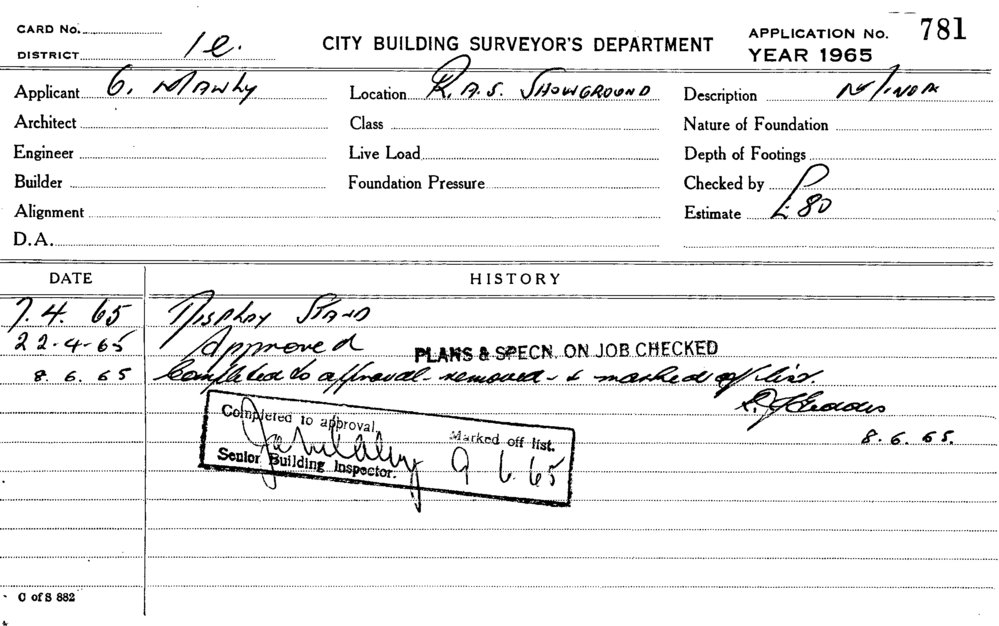 CARD No.
DISTRICT 1e.
CITY BUILDING SURVEYOR'S DEPARTMENT
APPLICATION No. 781
YEAR 1965
Applicant G. Mawby Location R.A.S. SHOWGROUND Description MINOR
Architect Class Nature of Foundation
Engineer Live Load Depth of Footings
Builder Foundation Pressure Checked by
Alignment Estimate £80
D.A.
DATE HISTORY
7.4.65 DISPLAY STAND
22-4-65 Approved PLANS & SPECN. ON JOB CHECKED
8.6.65 Completed to approval - removed - & marked off list.
8.6.65.
Completed to approval. Marked off list.
9 6.65
Senior Building Inspector.
C of S 882